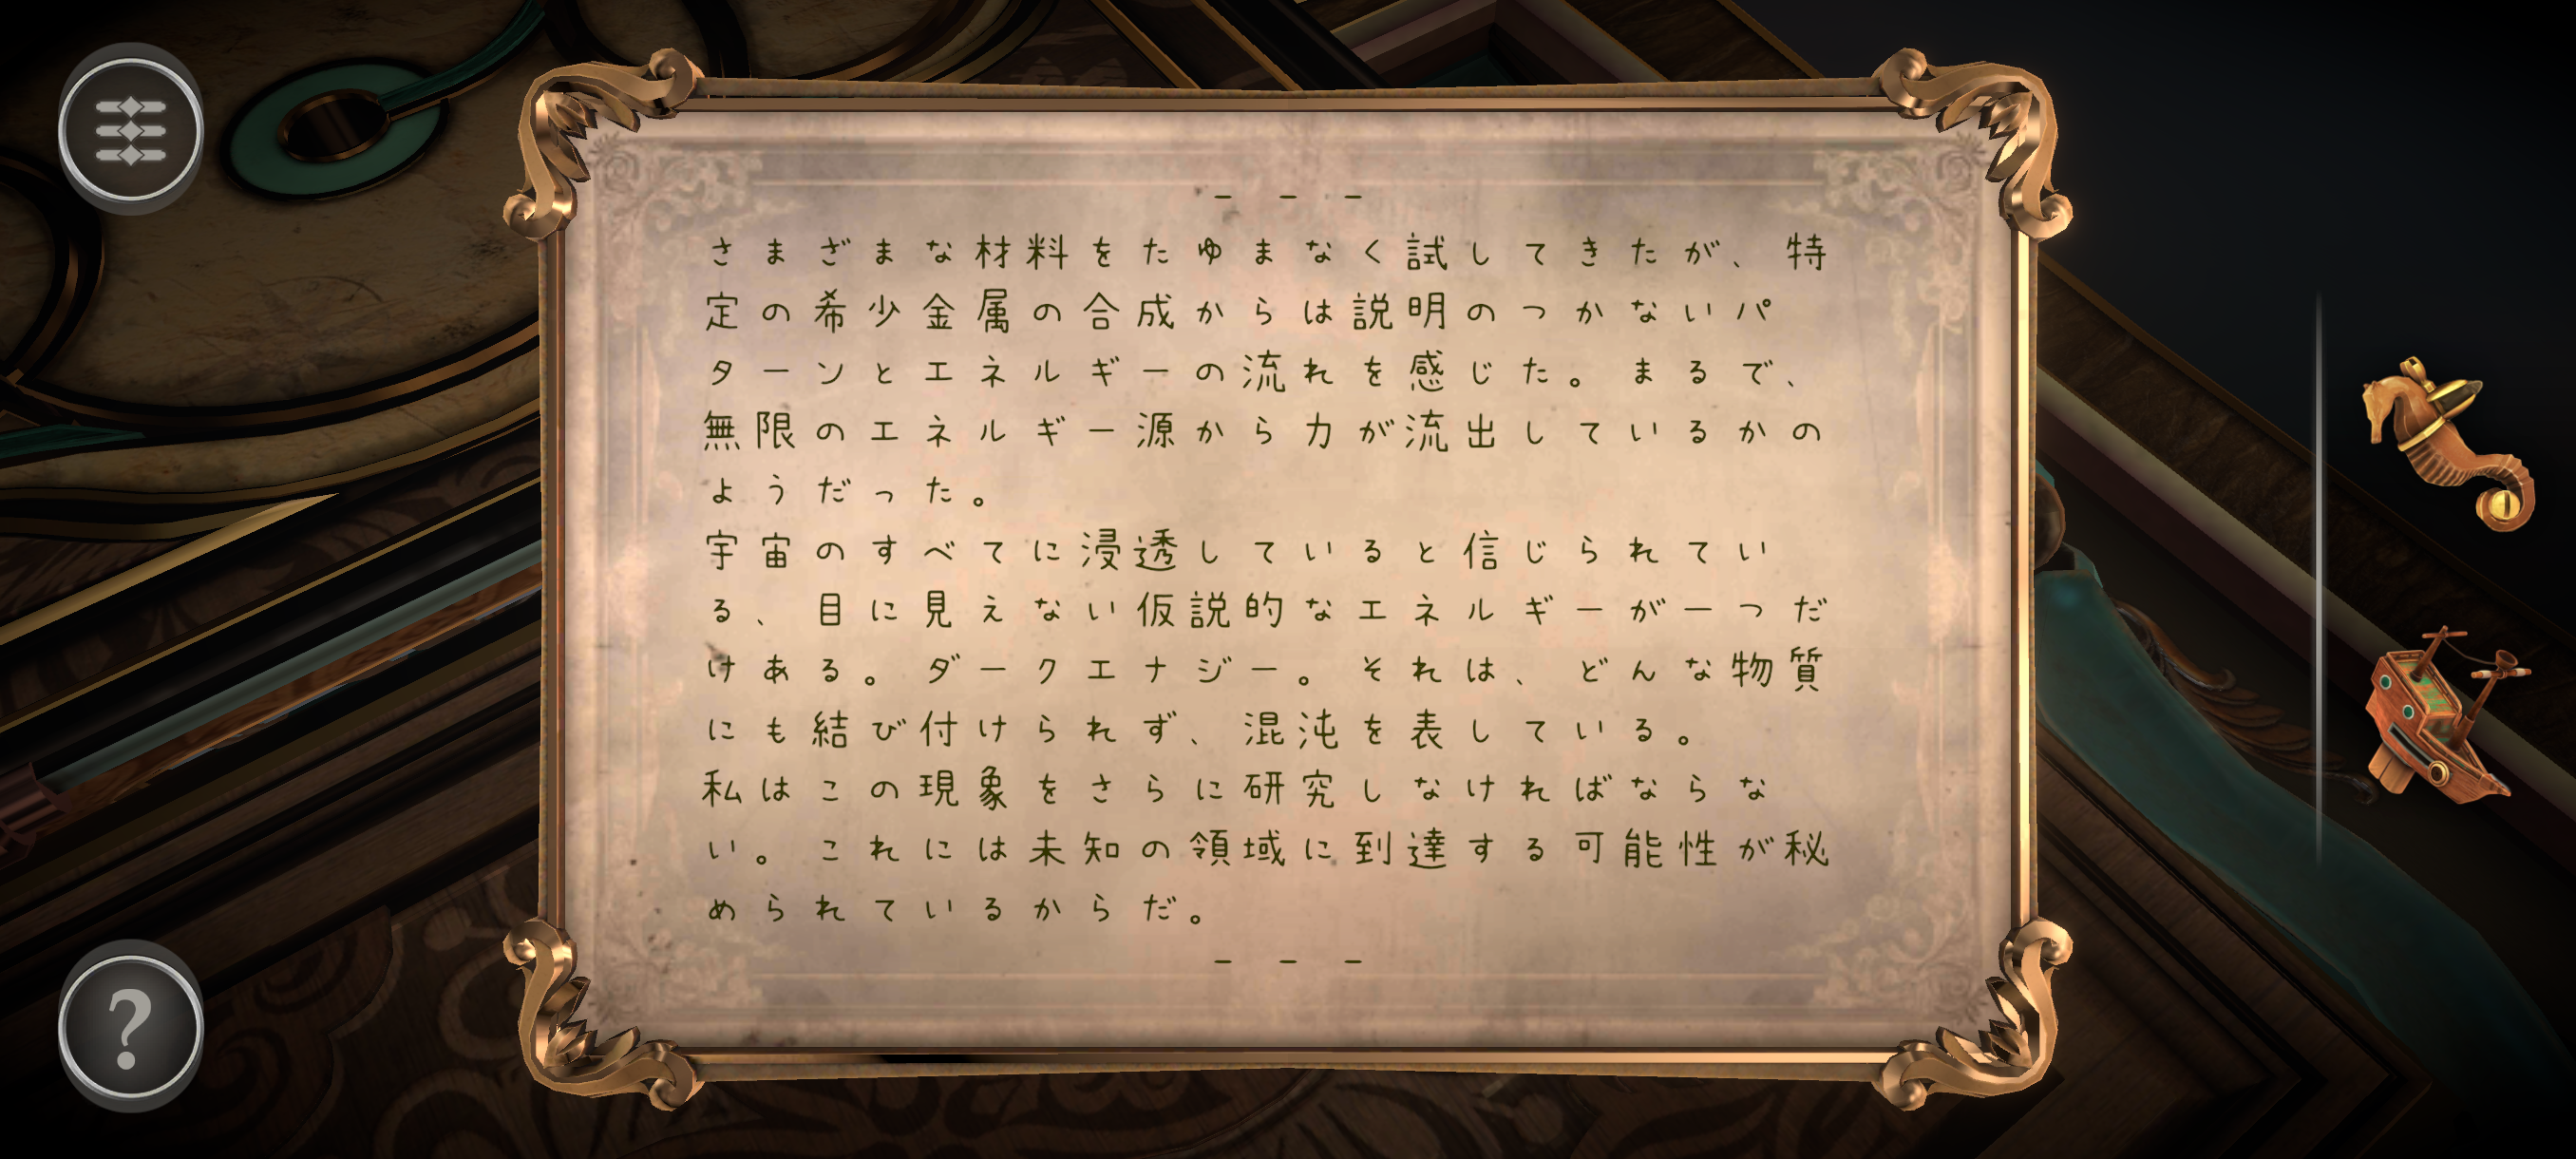 - - -
さまざまな材料をたゆまなく試してきたが、特
定の希少金属の合成からは説明のつかないパ
ターンとエネルギーの流れを感じた。まるで、
無限のエネルギー源から力が流出しているかの
ようだった。
宇宙のすべてに浸透していると信じられてい
る、目に見えない仮説的なエネルギーが一つだ
けある。ダークエナジー。それは、どんな物質
にも結び付けられず、混沌を表している。
私はこの現象をさらに研究しなければならな
い。これには未知の領域に到達する可能性が秘
められているからだ。
- - -
?